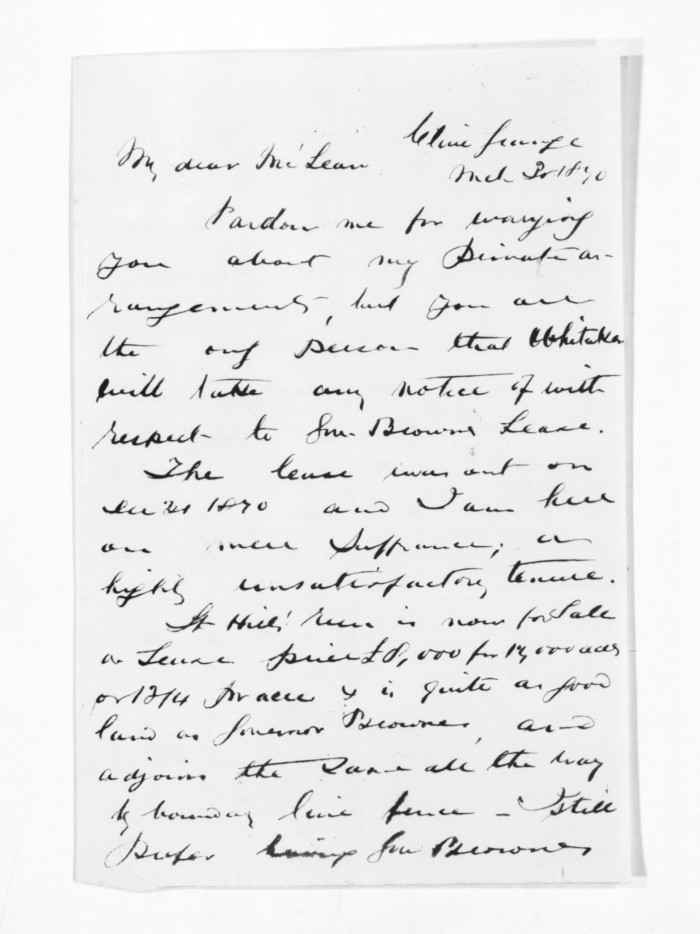 Clive Grange
My dear McLean
Mch 30 1870
Pardon me for worrying
you about my Private ar-
rangements, but you are
the only Person that Whitaker
will take any notice of with
respect to Gov. Browne's Lease.
The lease was out on
Dec 31 1870 and I am here
on mere Suffrance; a
highly unsatisfactory tenure.
St Hill's run is now for Sale
or Lease price £8,000 for 12,000 acres
or 13/4 pr acre & is quite as good
land as Governor Brownes, and
adjoins the Same all the way
by boundary line fence - I still
Prefer Gov Brownes